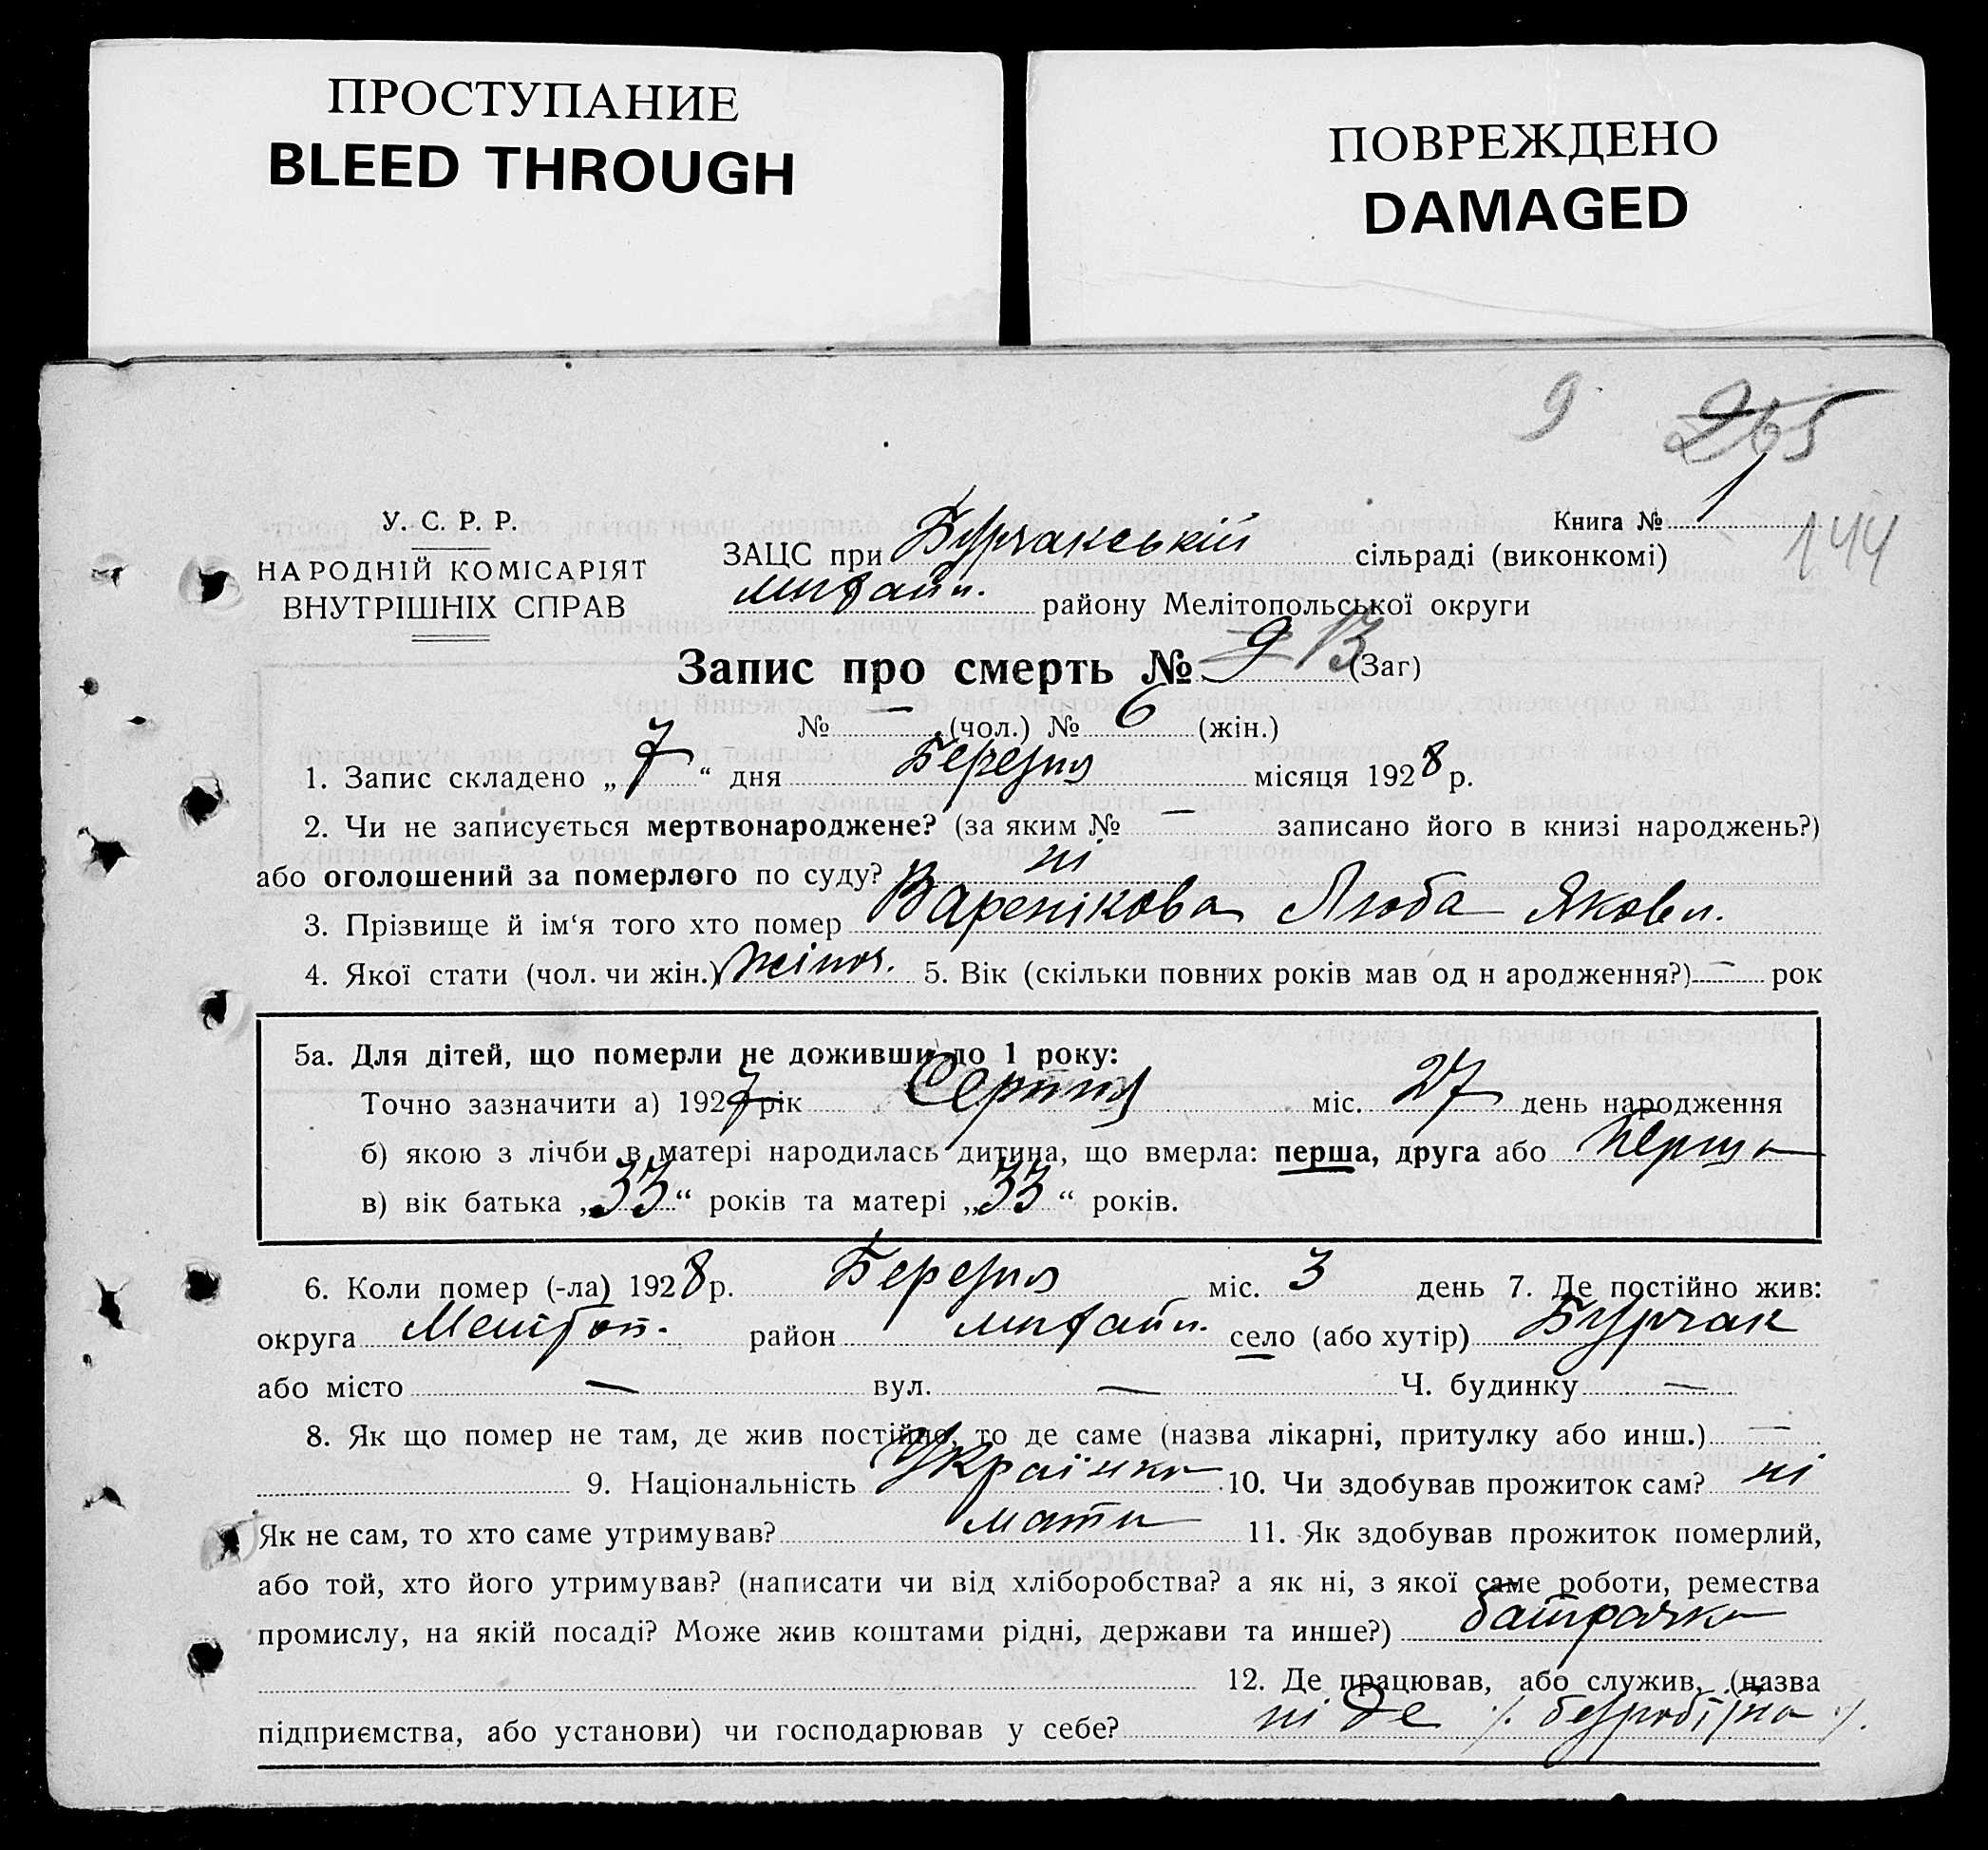 ПРОСТУПАНИЕ
BLEED THROUGH
ПОВРЕЖДЕНО
DAMAGED
9 265
У. С. Р. Р.
НАРОДНІЙ КОМІСАРІЯТ
ВНУТРІШНІХ СПРАВ
Книга № 1
144
ЗАЦС при Бурчакській сільраді (виконкомі)
району Мелітопольської округи
Запис про смерть № 9 13 (Заг)
№ — (чол.) № 6 (жін.)
1. Запис складено „ 7 “ дня Березня місяця 1928 р.
2. Чи не записується мертвонароджене? (за яким № — записано його в книзі народжень?)
або оголошений за померлого по суду? ні
3. Прізвище й ім'я того хто помер Варенікова Люба Яковл.
4. Якої стати (чол. чи жін.) жіноч. 5. Вік (скільки повних років мав од н ародження?) — рок
5а. Для дітей, що померли не доживши до 1 року:
Точно зазначити а) 1927 рік Серпня міс. 27 день народження
б) якою з лічби в матері народилась дитина, що вмерла: перша, друга або перша
в) вік батька „ 33 “ років та матері „ 33 “ років.
6. Коли помер (-ла) 1928 р. Березня міс. 3 день 7. Де постійно жив:
округа Мелітоп. район село (або хутір) Бурчак
або місто — вул. — Ч. будинку —
8. Як що помер не там, де жив постійно, то де саме (назва лікарні, притулку або инш.) —
9. Національність Українка 10. Чи здобував прожиток сам? ні
Як не сам, то хто саме утримував? мати 11. Як здобував прожиток померлий,
або той, хто його утримував? (написати чи від хліборобства? а як ні, з якої саме роботи, ремества
промислу, на якій посаді? Може жив коштами рідні, держави та инше?) батрачка
12. Де працював, або служив, (назва
підприємства, або установи) чи господарював у себе? ні де /. безробітна ./.